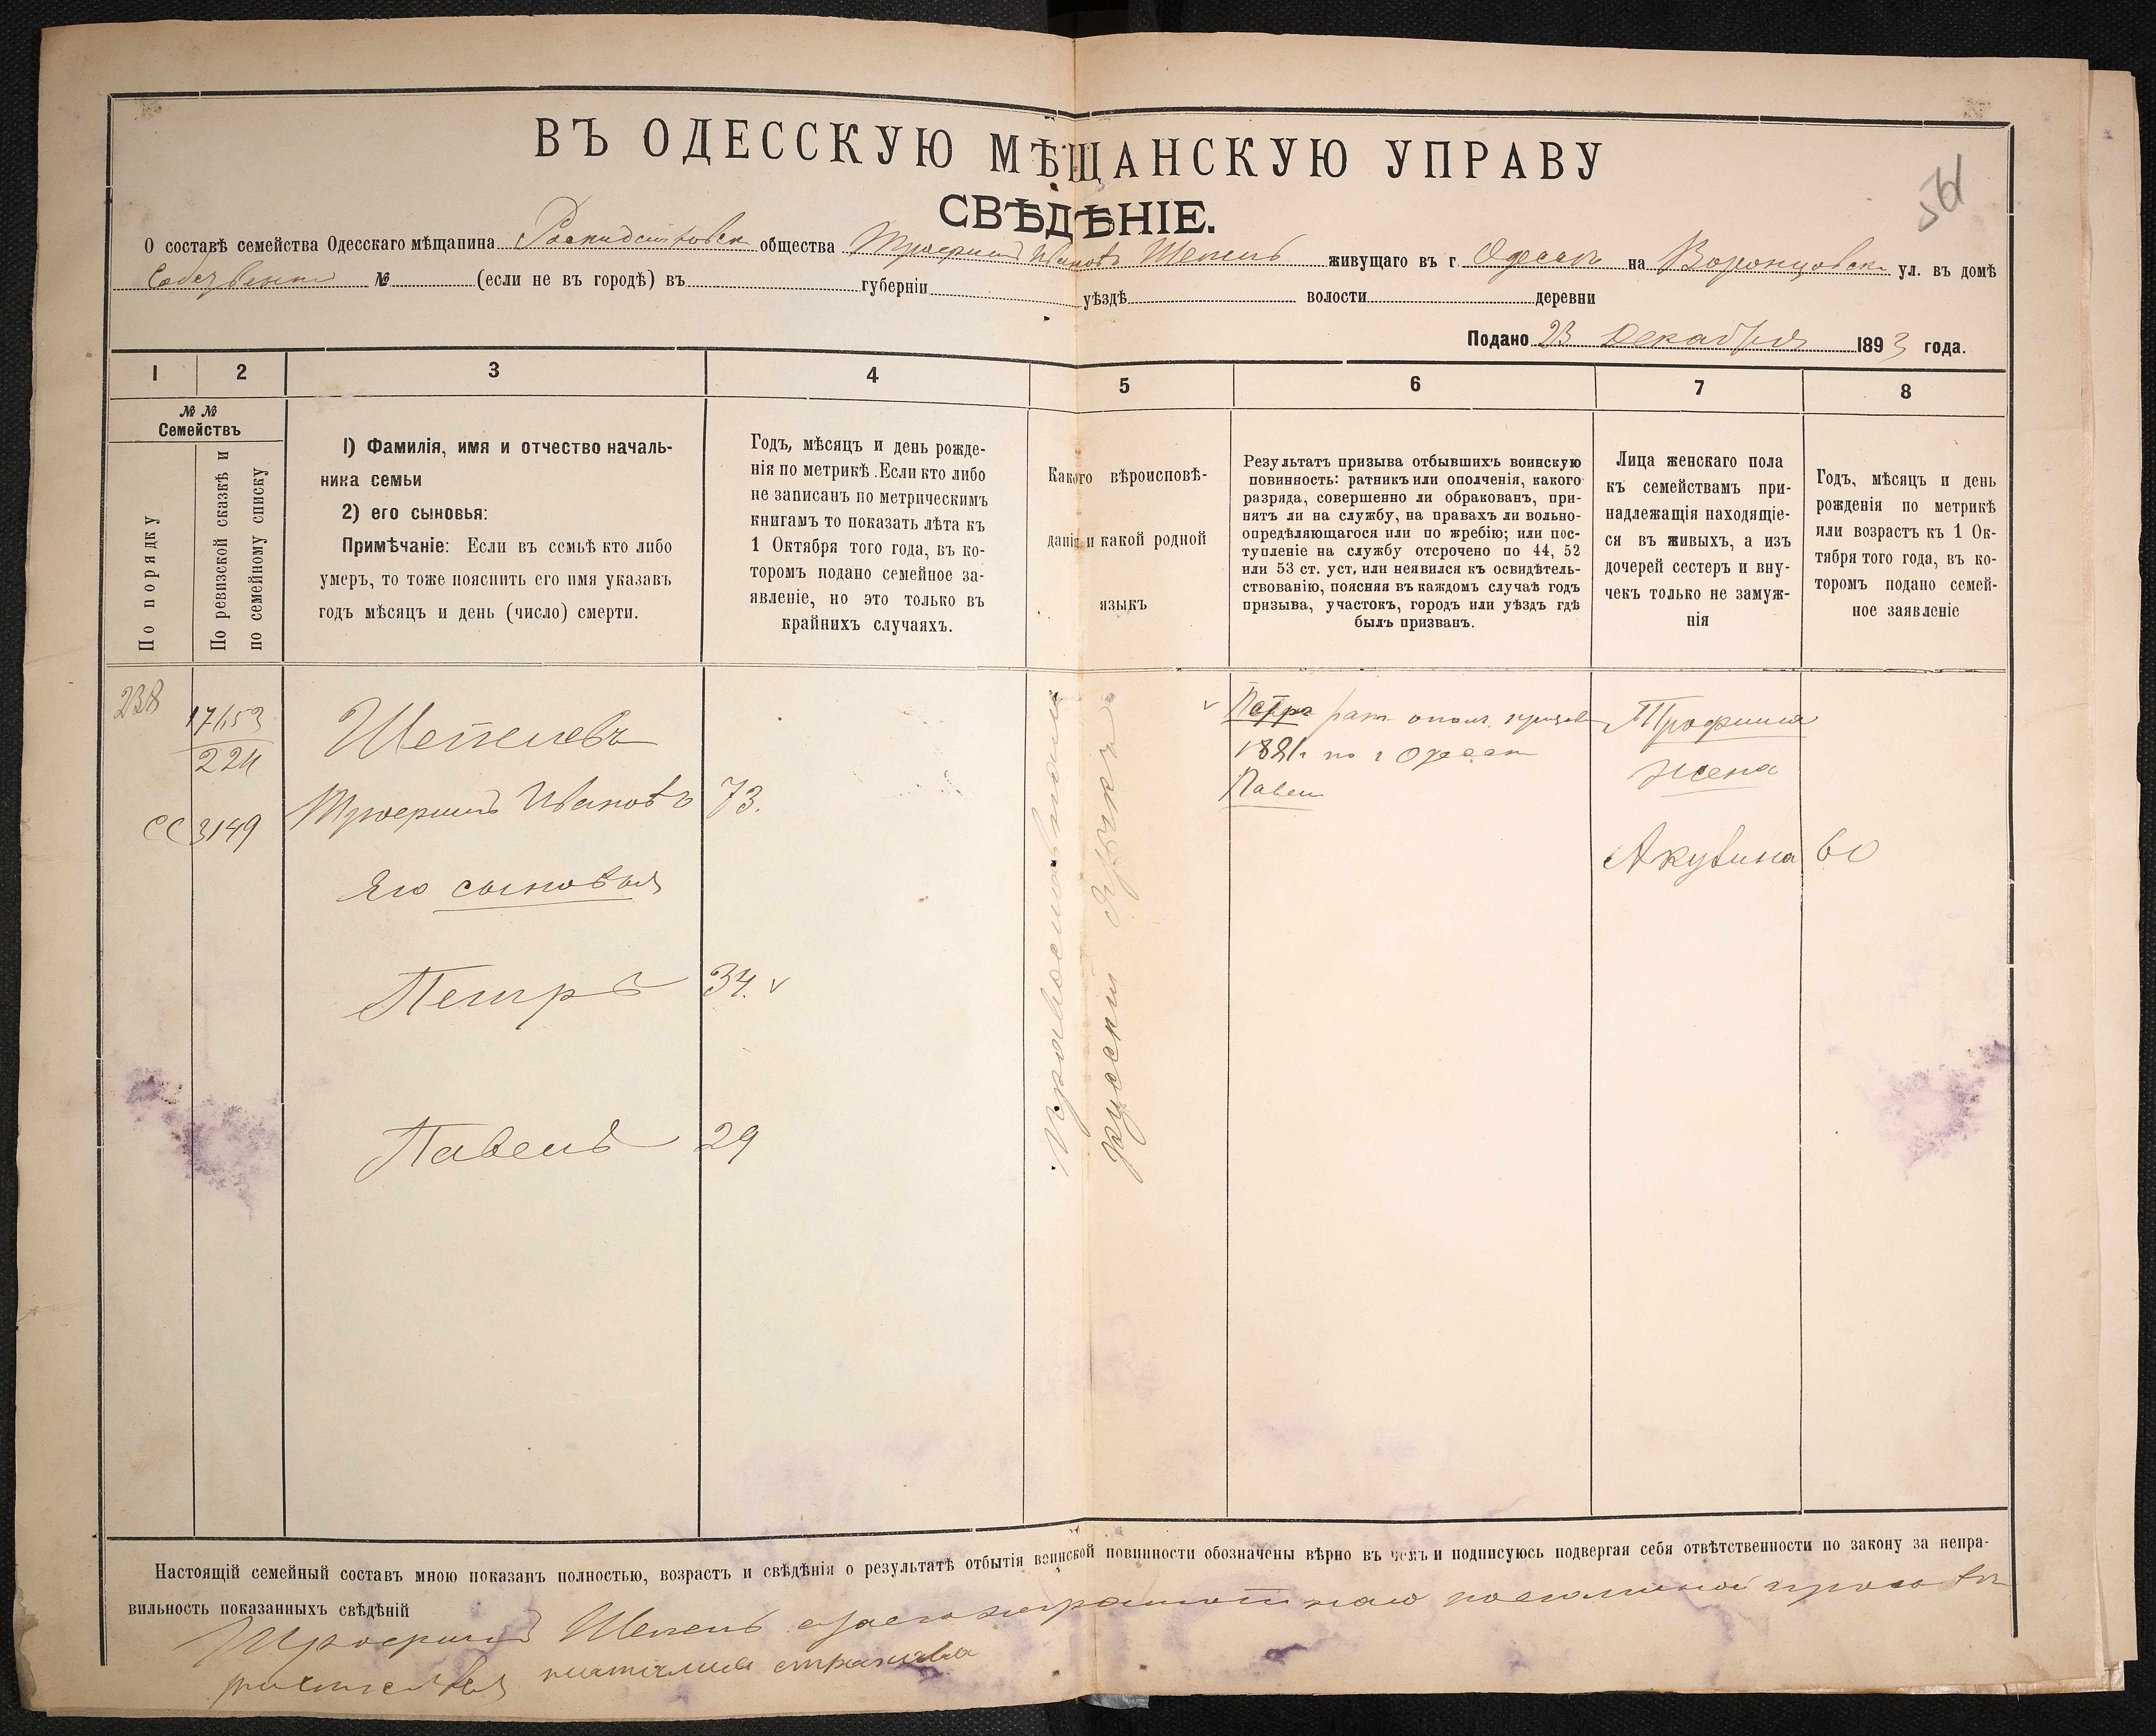 ВЪ ОДЕССКУЮ МѢЩАНСКУЮ УПРАВУ
СВѢДѢНІЕ.
О составѣ семейства Одесскаго мѣщанина общества Трофимъ Ивановъ Шепель живущаго въ г Одессѣ на Воронцовск ул. въ домѣ
№ (если не въ городѣ) въ губерніи уѣздѣ волости деревни
Подано 23 Декабря 1893 года.
1 2 3 4 5 6 7 8
№ № Семействъ
По порядку
По ревизской сказкѣ и по семейному списку
1) Фамилія, имя и отчество началь-
ника семьи
2) его сыновья:
Примѣчаніе: Если въ семьѣ кто либо
умеръ, то тоже пояснить его имя указавъ
годъ мѣсяцъ и день (число) смерти.
Годъ, мѣсяцъ и день рожде-
нія по метрикѣ. Если кто либо
не записанъ по метрическимъ
книгамъ то показать лѣта къ
1 Октября того года, въ ко-
торомъ подано семейное за-
явленіе, но это только въ
крайнихъ случаяхъ.
Какого вѣроисповѣ-
данія и какой родной
языкъ
Результатъ призыва отбывшихъ воинскую
повинность: ратникъ или ополченія, какого
разряда, совершенно ли обракованъ, при-
нятъ ли на службу, на правахъ ли вольно-
опредѣляющагося или по жребію; или пос-
тупленіе на службу отсрочено по 44, 52
или 53 ст. уст, или неявился къ освидѣтель-
ствованію, поясняя въ каждомъ случаѣ годъ
призыва, участокъ, городъ или уѣздъ гдѣ
былъ призванъ.
Лица женскаго пола
къ семействамъ при-
надлежащія находящіе-
ся въ живыхъ, а изъ
дочерей сестеръ и вну-
чекъ только не замуж-
нія
Годъ, мѣсяцъ и день
рожденія по метрикѣ
или возрастъ къ 1 Ок-
тября того года, въ ко-
торомъ подано семей-
ное заявленіе
238
17153
224
СС 3149
Трофимъ Ивановъ 73.
Его сыновья
Петръ 34.
Павелъ 29
Православнаго
русскій языкъ
Петръ рат. опол.
1881г по г Одессѣ
Павел
Трофима
жена
Акулина 60
Настоящій семейный составъ мною показанъ полностью, возрастъ и свѣдѣнія о результатѣ отбытія воинской повинности обозначены вѣрно въ чемъ и подписуюсь подвергая себя отвѣтственности по закону за непра-
вильность показанныхъ свѣдѣній
Трофимъ Шепель